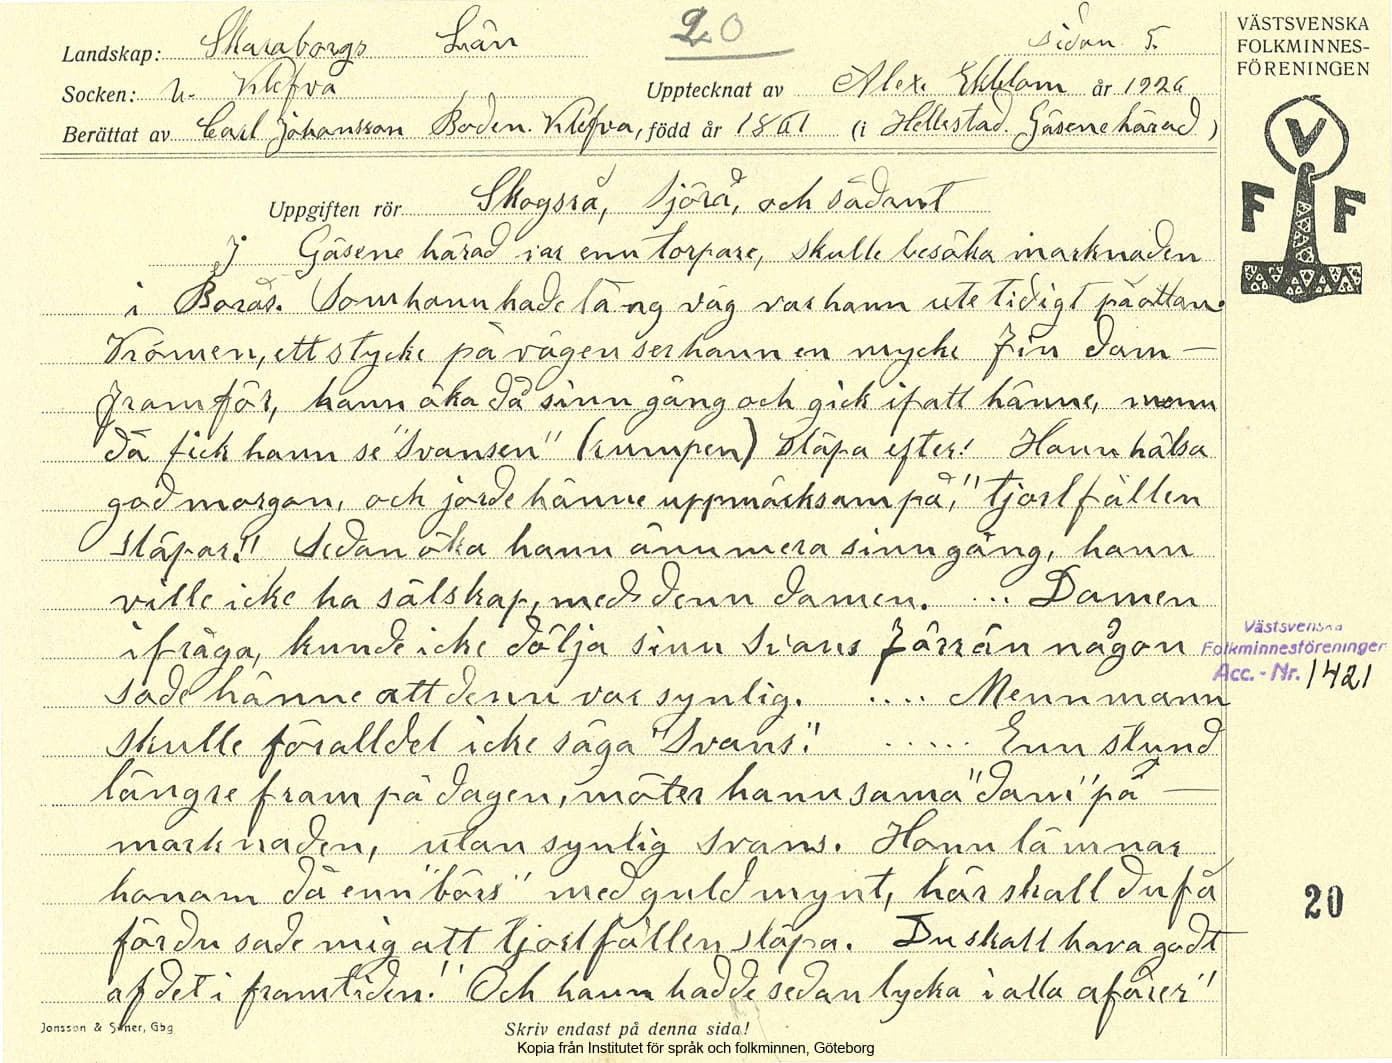 20
Landskap: Skaraborgs Län sidan 5.
Socken: N. Klefva Upptecknat av Alex. Ekblom år 1926
Berättat av Carl Johansson Boden. Klefva, född år 1861 (i Hellestad. Gäsene härad)
Uppgiften rör Skogsrå, Sjörå, och sådant
I Gäsene härad var enn torpare, skulle besöka marknaden
i Borås. Som hann hade lång väg var hann ute tidigt på ottan.
Krömen, ett stycke på vägen ser hann en mycke fin dam —
framför, hann öka då sinn gång och gick ifatt hänne, menn
då fick hann se "Svansen" (rumpen) släpa efter! Hann hälsa
god morgon, och jorde hänne uppmärksam på, "Kjortfållen
släpar!" Sedan öka hann ännu mera sinn gång, hann
ville icke ha sälskap, med denn damen. ... Damen
ifråga, kunde icke dölja sinn Svans förrän någon
sade hänne att denn var synlig. .... Menn mann
skulle föralldel icke säga "Svans"! ..... Enn stund
längre fram på dagen, möter hann sama "dam" på —
marknaden, utan synlig Svans. Hann lämnar
honom då enn "börs" med guldmynt, här skall du få
för du sade mig att kjortfållen släpa. Du skall hava godt
af det i framtiden." Och hann hadde sedan lycka i alla afärer"
Jonsson & S:ner, Gbg
Skriv endast på denna sida!
Kopia från Institutet för språk och folkminnen, Göteborg
VÄSTSVENSKA
FOLKMINNES-
FÖRENINGEN
V
F F
Västsvenska
Folkminnesföreningen
Acc.-Nr. 1421
20